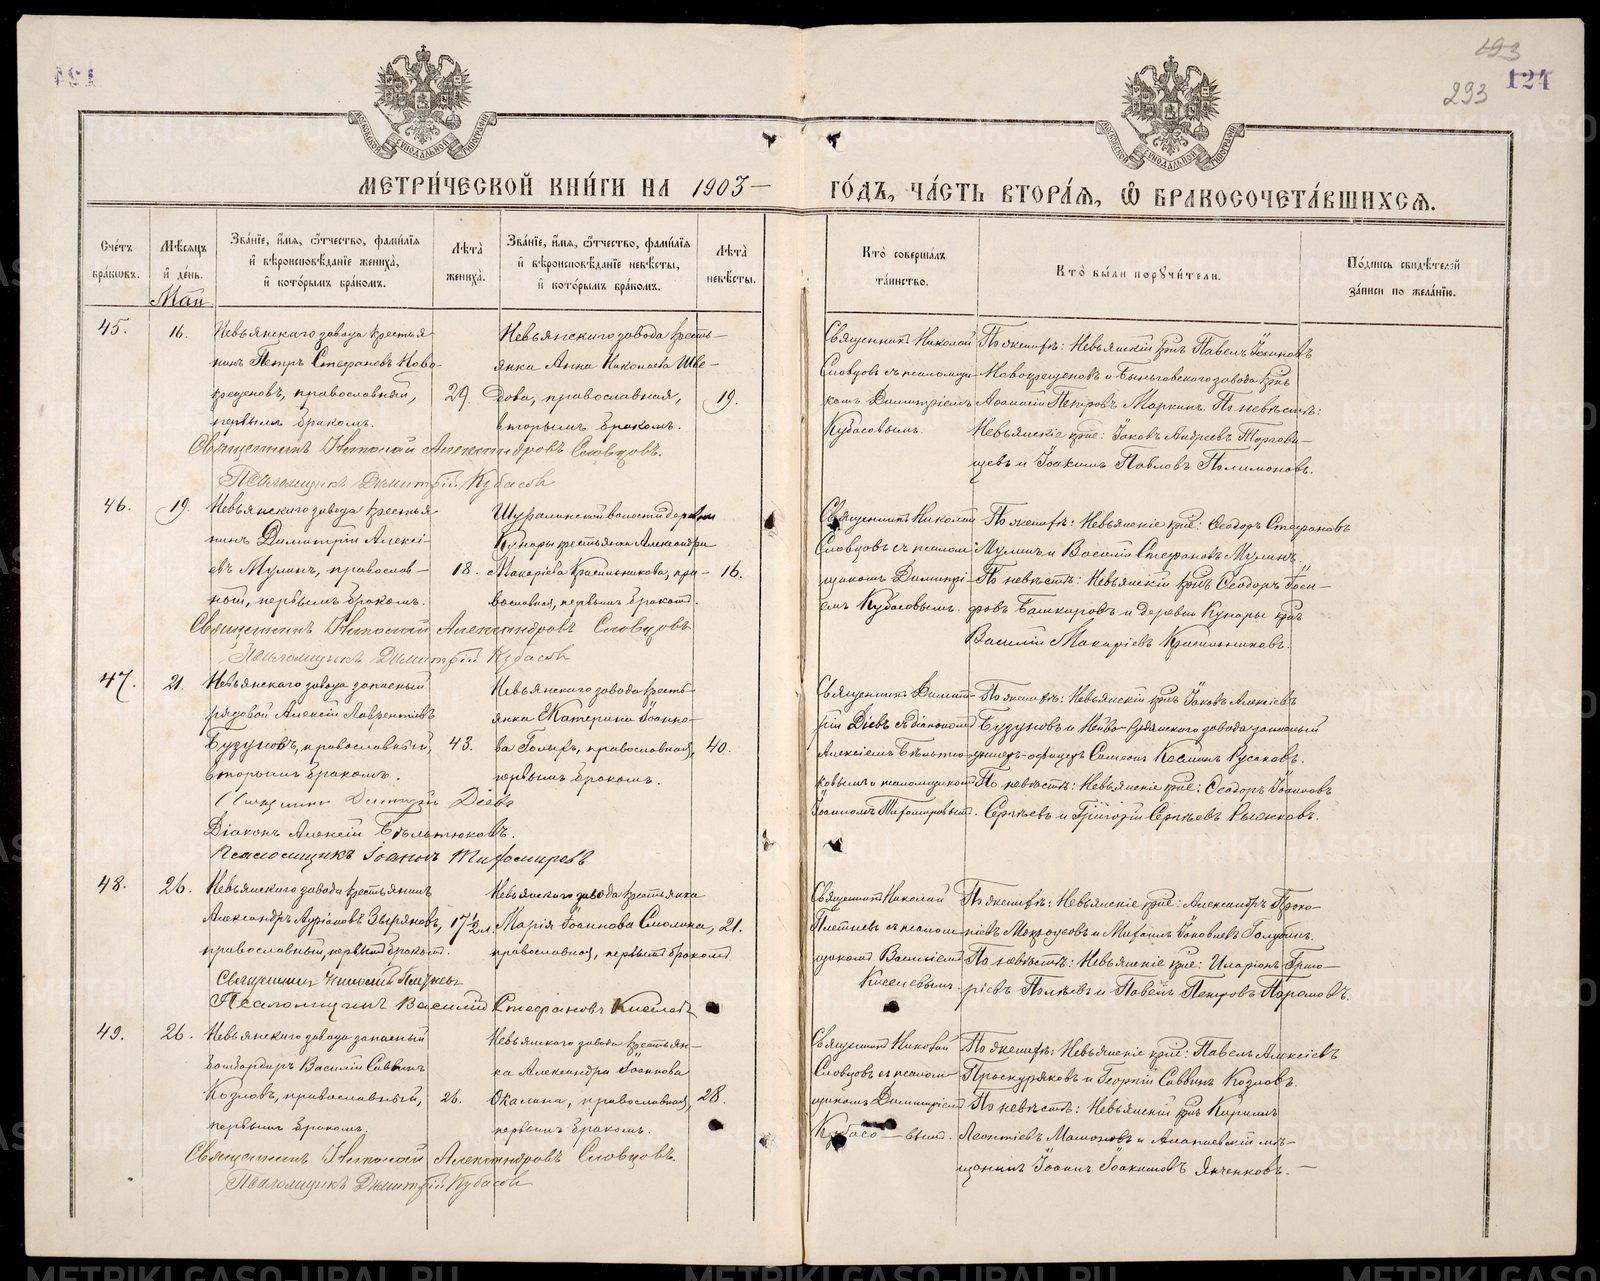 193
293
124
МЕТРИ́ЧЕСКОЙ КНИ́ГИ НА 1903 — ГО́ДЪ, ЧА́СТЬ ВТОРА́Я, Ѽ БРАКОСОЧЕТА́ВШИХСЯ.
Счетъ браковъ.
Мѣсяцъ и день.
Зва́ніе, и́мя, ѻтчество, фами́лія и вѣроисповѣданіе жениха, и кото́рымъ бра́комъ.
Лѣта жениха.
Зва́ніе, и́мя, ѻтчество, фами́лія и вѣроисповѣданіе невѣсты, и кото́рымъ бра́комъ.
Лѣта невѣсты.
Кто соверша́лъ таинство.
Кто́ бы́ли порꙋчи́тели.
По́дпись свидѣтелей за́писи по жела́нію.
Май
45.
16.
Невьянскаго завода крестья-
нинъ Петръ Стефановъ Ново-
крещеновъ, православный,
первымъ бракомъ.
29.
Невьянскаго завода кресть-
янка Анна Николаева Шве-
дова, православная,
вторымъ бракомъ.
19.
Священникъ Николай
Словцовъ съ псаломщи-
комъ Димитріемъ
Кубасовымъ.
По женихѣ: Невьянскій кр-нъ Павелъ Іоанновъ
Новокрещеновъ и Быньговскаго завода кр-нъ
Аѳанасій Петровъ Маркинъ. По невѣстѣ:
Невьянскіе кр-не: Іаковъ Андреевъ Торгова-
щевъ и Іоакимъ Павловъ Полимоновъ.
Священникъ Николай Александровъ Словцовъ.
Псаломщикъ Димитрій Кубасовъ
46.
19.
Невьянскаго завода крестья-
нинъ Димитрій Алексі-
евъ Мулинъ, православ-
ный, первымъ бракомъ.
18.
Шуралинской волости деревни
Кунары крестьянка Александра
Макаріева Красильникова, пра-
вославная, первымъ бракомъ.
16.
Священникъ Николай
Словцовъ съ псалом-
щикомъ Димитрі-
емъ Кубасовымъ.
По женихѣ: Невьянскіе кр-не: Ѳеодоръ Стефановъ
Мулинъ и Василій Стефановъ Мулинъ.
По невѣстѣ: Невьянскій кр-нъ Ѳеодоръ Іоси-
фовъ Башкировъ и деревни Кунары кр-нъ
Василій Макаріевъ Красильниковъ.
Священникъ Николай Александровъ Словцовъ
Псаломщикъ Димитрій Кубасовъ
47.
21.
Невьянскаго завода запасный
рядовой Алексій Лаврентіевъ
Бузуновъ, православный,
вторымъ бракомъ.
43.
Невьянскаго завода кресть-
янка Екатерина Іоанно-
ва Голыхъ, православная,
первымъ бракомъ.
40.
Священникъ Димит-
рій Діевъ съ діакономъ
Алексіемъ Бѣльтю-
ковымъ и псаломщикомъ
Іоанномъ Тифоміровымъ.
По женихѣ: Невьянскій кр-нъ Іаковъ Алексіевъ
Бузуновъ и Нейво-Рудянскаго завода запасный
унтеръ-офицеръ Симеонъ Косминъ Русаковъ.
По невѣстѣ: Невьянскіе кр-не: Ѳеодоръ Іоанновъ
Сергѣевъ и Григорій Сергѣевъ Рыжковъ.
Священникъ Димитрій Діевъ
Діаконъ Алексій Бѣльтюковъ.
Псаломщикъ Іоаннъ Тифоміровъ
48.
26.
Невьянскаго завода крестьянинъ
Александръ Зыряновъ,
православный, первымъ бракомъ.
17½ л.
Невьянскаго завода крестьянка
Марія Іоаннова Смолина,
православная, первымъ бракомъ
21.
Священникъ Николай
Плетневъ съ псалом-
щикомъ Василіемъ
Киселевымъ.
По женихѣ: Невьянскіе кр-не: Александръ Проко-
піевъ и Михаилъ Іаковлевъ Голубинъ.
По невѣстѣ: Невьянскіе кр-не: Иларіонъ Григо-
ріевъ Полѣевъ и Павелъ Петровъ
Священникъ Николай Плетневъ
Псаломщикъ Василій Стефановъ Киселевъ
49.
26.
Невьянскаго завода запасный
бомбардиръ Василій Саввинъ
Козловъ, православный,
первымъ бракомъ.
26.
Невьянскаго завода крестьян-
ка Александра Іоаннова
Окалина, православная,
первымъ бракомъ.
28.
Священникъ Николай
Словцовъ съ псалом-
щикомъ Димитріемъ
Кубасо—вымъ.
По женихѣ: Невьянскіе кр-не: Павелъ Алексіевъ
Проскуряковъ и Георгій Саввинъ Козловъ.
По невѣстѣ: Невьянскій кр-нъ Кириллъ
Леонтіевъ Мамоновъ и Алапаевскій мѣ-
щанинъ Іоаннъ Іоакимовъ Янченковъ.—
Священникъ Николай Александровъ Словцовъ.
Псаломщикъ Димитрій Кубасовъ
METRIKI.GASO-URAL.RU